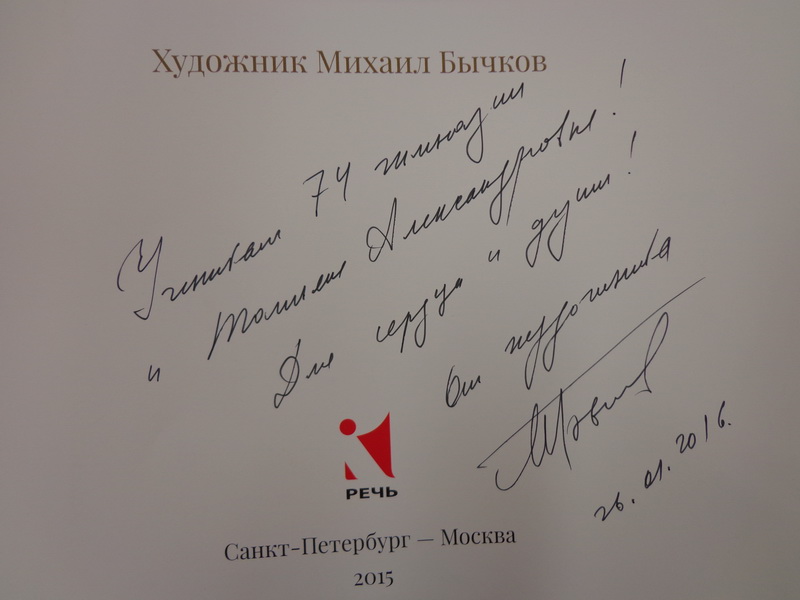 Художник Михаил Бычков
Ученикам 74 гимназии
и Александровне!
Для сердца и души!
От художника
26.01.2016.
РЕЧЬ
Санкт-Петербург — Москва
2015